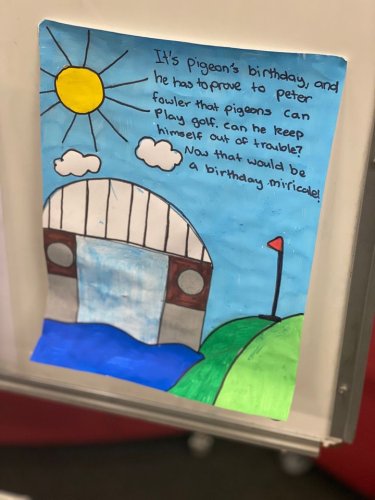 It's pigeon's birthday, and
he has to prove to peter
fowler that pigeons can
play golf. can he keep
himself out of trouble?
Now that would be
a birthday miricale!